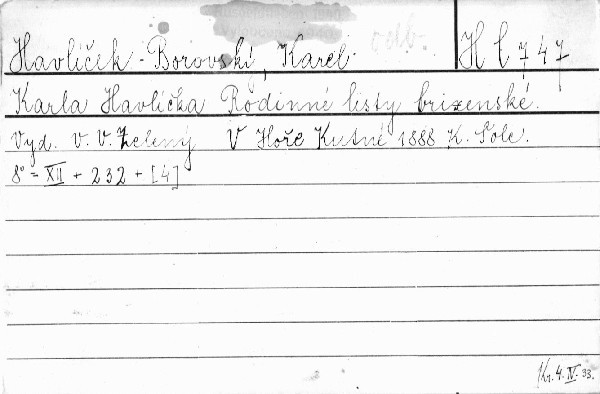 Havlíček-Borovský, Karel. odb. H l 747
Karla Havlíčka Rodinné listy brixenské.
Vyd. V. V. Zelený V Hoře Kutné 1888 K. Šolc.
8° = XII + 232 + [4]
Kr. 4. IV. 33.